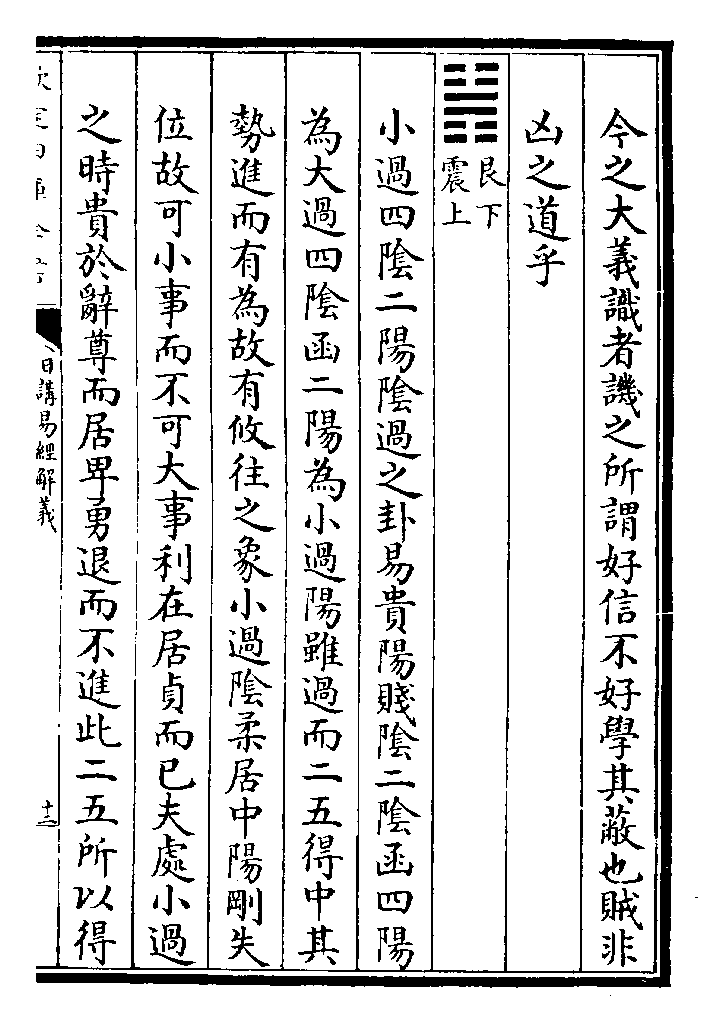 今之大義識者譏之所謂好信不好學其蔽也賊非
凶之道乎
艮下
震上
小過四陰二陽陰過之卦易貴陽賤陰二陰函四陽
為大過四陰函二陽為小過陽雖過而二五得中其
勢進而有為故有攸往之象小過陰柔居中陽剛失
位故可小事而不可大事利在居貞而已夫處小過
之時貴於辭尊而居卑勇退而不進此二五所以得
日講易經解義
十三